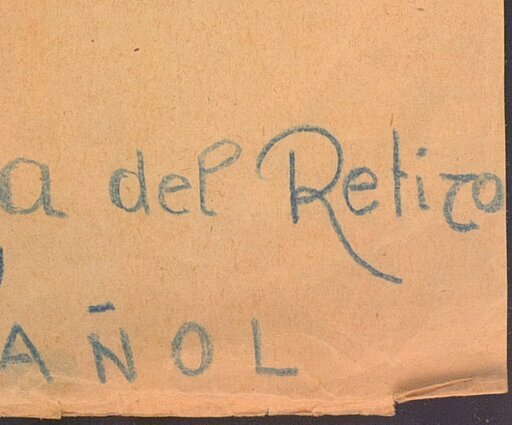 a del Retiro
AÑOL